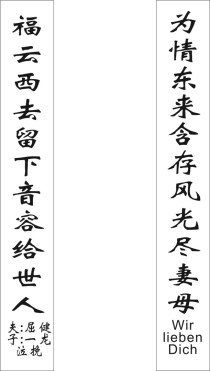 为情东来含存风光尽妻母
Wir
lieben
Dich
福云西去留下音容给世人
夫：屈健
子：一龙
泣挽